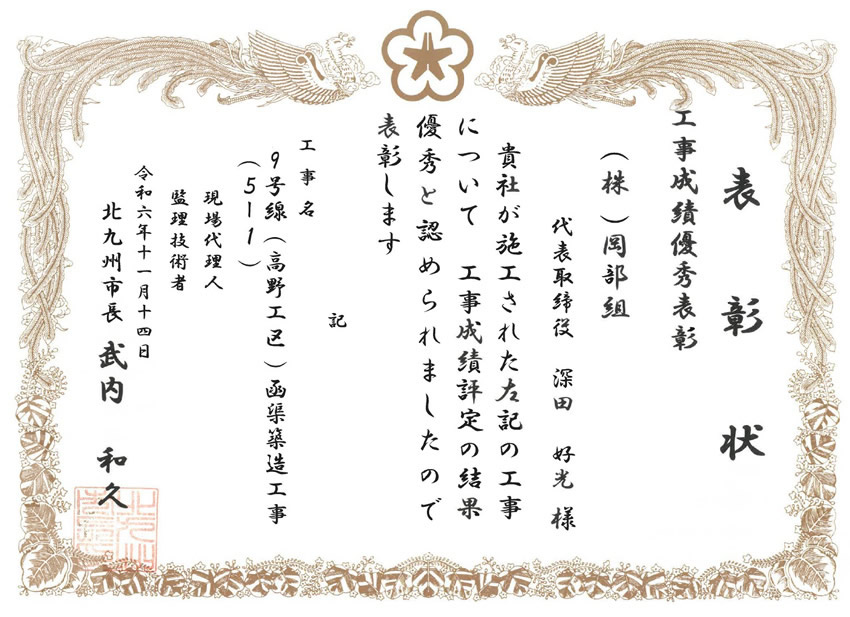 表彰状
工事成績優秀表彰
(株)岡部組
代表取締役 深田 好光 様
貴社が施工された左記の工事
について 工事成績評定の結果
優秀と認められましたので
表彰します
記
工事名
9号線(高野工区)函渠築造工事
(5-1)
現場代理人
監理技術者
令和六年十一月十四日
北九州市長 武内 和久